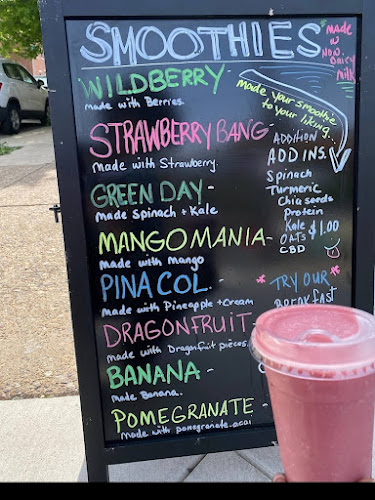 SMOOTHIES
made in Non. Dairy Milk
WILDBERRY -
made with Berries.
made your smoothie to your liking..
STRAWBERRY BANG
made with Strawberry.
ADDITION
ADD INS.
Spinach
Turmeric
Chia seeds
Protein
Kale
OATS $1.00
CBD
GREEN DAY -
made Spinach + Kale
MANGOMANIA -
made with Mango
PINA COL. -
made with Pineapple + Cream
* TRY OUR *
BREAKfast
DRAGONFRUIT -
made with Dragonfruit pieces.
BANANA -
made Banana.
POMEGRANATE -
made with pomegranate acai